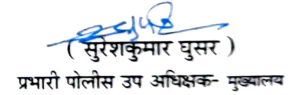 ( सुरेशकुमार घुसर )
प्रभारी पोलीस उप अधिक्षक- मुख्यालय